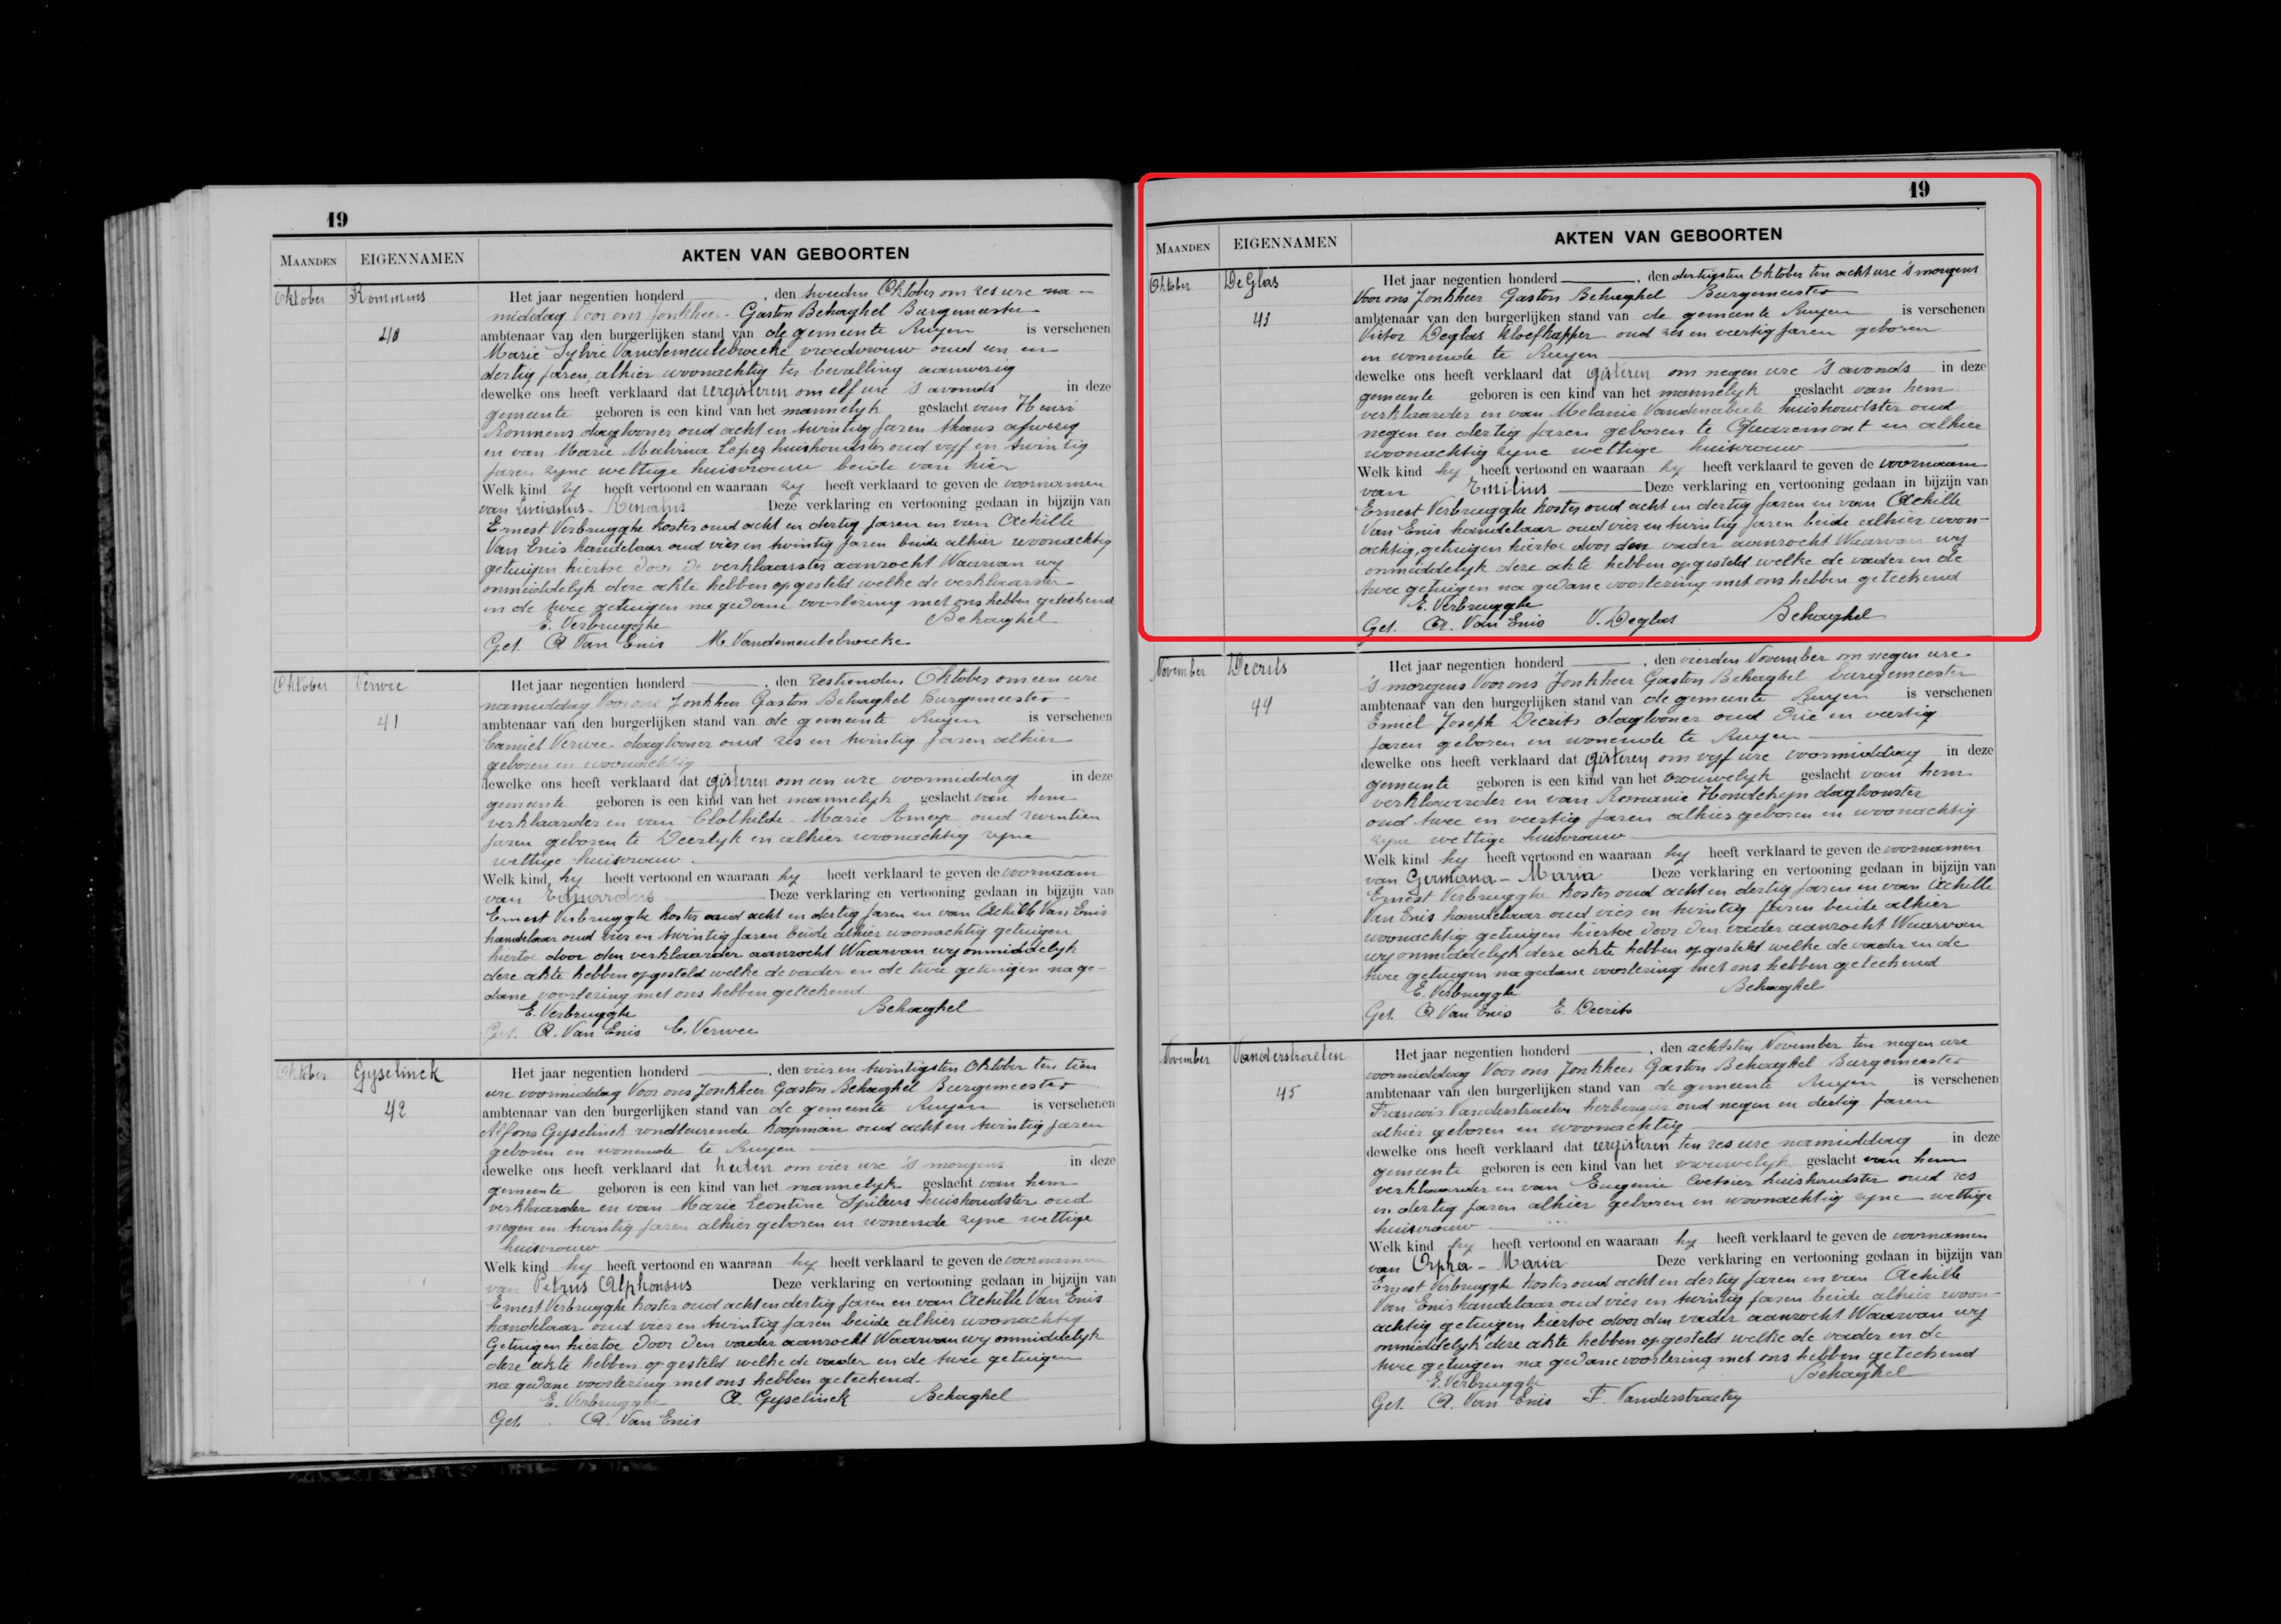 19
MAANDEN
EIGENNAMEN
AKTEN VAN GEBOORTEN
Oktober
Rommens
40
Het jaar negentien honderd , den tweeden Oktober om zes ure na-
middag Voor ons Jonkheer Gaston Behaghel Burgemeester
ambtenaar van den burgerlijken stand van de gemeente Ruyen is verschenen
Marie Sylvie Vandemeulebroecke vroedvrouw oud een en
dertig jaren, alhier woonachtig ter bevalling aanwezig
dewelke ons heeft verklaard dat eergisteren om elf ure 's avonds in deze
gemeente geboren is een kind van het mannelyk geslacht van Henri
Rommens daglooner oud acht en twintig jaren thans afwezig
en van Marie Mathina Lepez huishoudster oud vyf en twintig
jaren zyne wettige huisvrouw beide van hier
Welk kind zy heeft vertoond en waaraan zy heeft verklaard te geven de voornamen
van Lucianus-Renatus Deze verklaring en vertooning gedaan in bijzijn van
Ernest Verbrugghe koster oud acht en dertig jaren en van Achille
Van Enis handelaar oud vier en twintig jaren beide alhier woonachtig
getuigen hiertoe door de verklaarster aanzocht Waarvan wy
onmiddelyk deze akte hebben opgesteld welke de verklaarster
en de twee getuigen na gedane voorlezing met ons hebben geteekend
E. Verbrugghe Behaghel
Get. A Van Enis M. Vandemeulebroecke
Oktober
Verwee
41
Het jaar negentien honderd , den zestienden Oktober om een ure
namiddag Voor ons Jonkheer Gaston Behaghel Burgemeester
ambtenaar van den burgerlijken stand van de gemeente Ruyen is verschenen
Camiel Verwee daglooner oud zes en twintig jaren alhier
geboren en woonachtig
dewelke ons heeft verklaard dat gisteren om een ure voormiddag in deze
gemeente geboren is een kind van het mannelyk geslacht van hem
verklaarder en van Clothilde-Marie Ameye oud twintien
jaren geboren te Deerlyk en alhier woonachtig zyne
wettige huisvrouw.
Welk kind hy heeft vertoond en waaraan hy heeft verklaard te geven de voornaam
van Eduardus Deze verklaring en vertooning gedaan in bijzijn van
Ernest Verbrugghe koster oud acht en dertig jaren en van Achille Van Enis
handelaar oud vier en twintig jaren beide alhier woonachtig getuigen
hiertoe door den verklaarder aanzocht Waarvan wy onmiddelyk
deze akte hebben opgesteld welke de vader en de twee getuigen na ge-
dane voorlezing met ons hebben geteekend
E. Verbrugghe Behaghel
Get. A. Van Enis C. Verwee
Oktober
Gyselinck
42
Het jaar negentien honderd , den vier en twintigsten Oktober ten tien
ure voormiddag Voor ons Jonkheer Gaston Behaghel Burgemeester
ambtenaar van den burgerlijken stand van de gemeente Ruyen is verschenen
Alfons Gyselinck rondleurende koopman oud acht en twintig jaren
geboren en wonende te Ruyen
dewelke ons heeft verklaard dat heden om vier ure 's morgens in deze
gemeente geboren is een kind van het mannelyk geslacht van hem
verklaarder en van Marie Leontine Spileers huishoudster oud
negen en twintig jaren alhier geboren en wonende zyne wettige
huisvrouw
Welk kind hy heeft vertoond en waaraan hy heeft verklaard te geven de voornamen
van Petrus Alphonsus Deze verklaring en vertooning gedaan in bijzijn van
Ernest Verbrugghe koster oud acht en dertig jaren en van Achille Van Enis
handelaar oud vier en twintig jaren beide alhier woonachtig
Getuigen hiertoe door den vader aanzocht Waarvan wy onmiddelyk
deze akte hebben opgesteld welke de vader en de twee getuigen
na gedane voorlezing met ons hebben geteekend.
E. Verbrugghe A. Gyselinck Behaghel
Get. A. Van Enis
19
MAANDEN
EIGENNAMEN
AKTEN VAN GEBOORTEN
Oktober
De Glas
43
Het jaar negentien honderd , den dertigsten Oktober ten acht ure 's morgens
Voor ons Jonkheer Gaston Behaghel Burgemeester
ambtenaar van den burgerlijken stand van de gemeente Ruyen is verschenen
Victor Deglas kloefkapper oud zes en veertig jaren geboren
en wonende te Ruyen
dewelke ons heeft verklaard dat gisteren om negen ure 's avonds in deze
gemeente geboren is een kind van het mannelyk geslacht van hem
verklaarder en van Melanie Vandenabeele huishoudster oud
negen en dertig jaren geboren te Quaremont en alhier
woonachtig zyne wettige huisvrouw
Welk kind hy heeft vertoond en waaraan hy heeft verklaard te geven de voornaam
van Emilius Deze verklaring en vertooning gedaan in bijzijn van
Ernest Verbrugghe koster oud acht en dertig jaren en van Achille
Van Enis handelaar oud vier en twintig jaren beide alhier woon-
achtig, getuigen hiertoe door den vader aanzocht Waarvan wy
onmiddelyk deze akte hebben opgesteld welke de vader en de
twee getuigen na gedane voorlezing met ons hebben geteekend
E. Verbrugghe
Get. A. Van Enis V. Deglas Behaghel
November
Decrits
44
Het jaar negentien honderd , den vierden November om negen ure
's morgens Voor ons Jonkheer Gaston Behaghel burgemeester
ambtenaar van den burgerlijken stand van de gemeente Ruyen is verschenen
Emiel Joseph Decrits daglooner oud drie en veertig
jaren geboren en wonende te Ruyen
dewelke ons heeft verklaard dat gisteren om vyf ure voormiddag in deze
gemeente geboren is een kind van het vrouwelyk geslacht van hem
verklaarder en van Romanie Hondekyn dagloonster
oud twee en veertig jaren alhier geboren en woonachtig
zyne wettige huisvrouw
Welk kind hy heeft vertoond en waaraan hy heeft verklaard te geven de voornamen
van Germana-Maria Deze verklaring en vertooning gedaan in bijzijn van
Ernest Verbrugghe koster oud acht en dertig jaren en van Achille
Van Enis handelaar oud vier en twintig jaren beide alhier
woonachtig getuigen hiertoe door den vader aanzocht Waarvan
wy onmiddelyk deze akte hebben opgesteld welke de vader en de
twee getuigen na gedane voorlezing met ons hebben geteekend
E. Verbrugghe Behaghel
Get. A Van Enis E. Decrits
November
Vanderstraeten
45
Het jaar negentien honderd , den achtsten November ten negen ure
voormiddag Voor ons Jonkheer Gaston Behaghel Burgemeester
ambtenaar van den burgerlijken stand van de gemeente Ruyen is verschenen
Francois Vanderstraeten herbergier oud negen en dertig jaren
alhier geboren en woonachtig
dewelke ons heeft verklaard dat eergisteren ten zes ure namiddag in deze
gemeente geboren is een kind van het vrouwelyk geslacht van hem
verklaarder en van Eugenie Coessier huishoudster oud zes
en dertig jaren alhier geboren en woonachtig zyne wettige
huisvrouw
Welk kind hy heeft vertoond en waaraan hy heeft verklaard te geven de voornamen
van Orpha-Maria Deze verklaring en vertooning gedaan in bijzijn van
Ernest Verbrugghe koster oud acht en dertig jaren en van Achille
Van Enis handelaar oud vier en twintig jaren beide alhier woon-
achtig getuigen hiertoe door den vader aanzocht Waarvan wy
onmiddelyk deze akte hebben opgesteld welke de vader en de
twee getuigen na gedane voorlezing met ons hebben geteekend
E. Verbrugghe Behaghel
Get. A. Van Enis F. Vanderstraeten